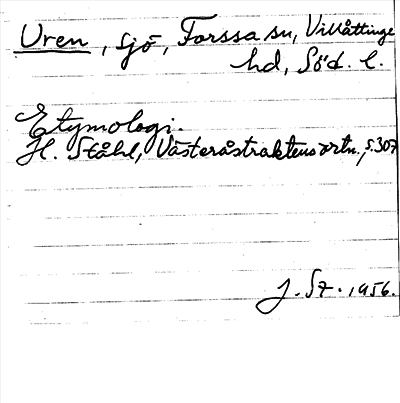 Uren, sjö, Forssa sn, Villåttinge
hd, Söd. l.
Etymologi.
H. Ståhl, Västeråstraktens ortn., s. 307
J. St. 1956.